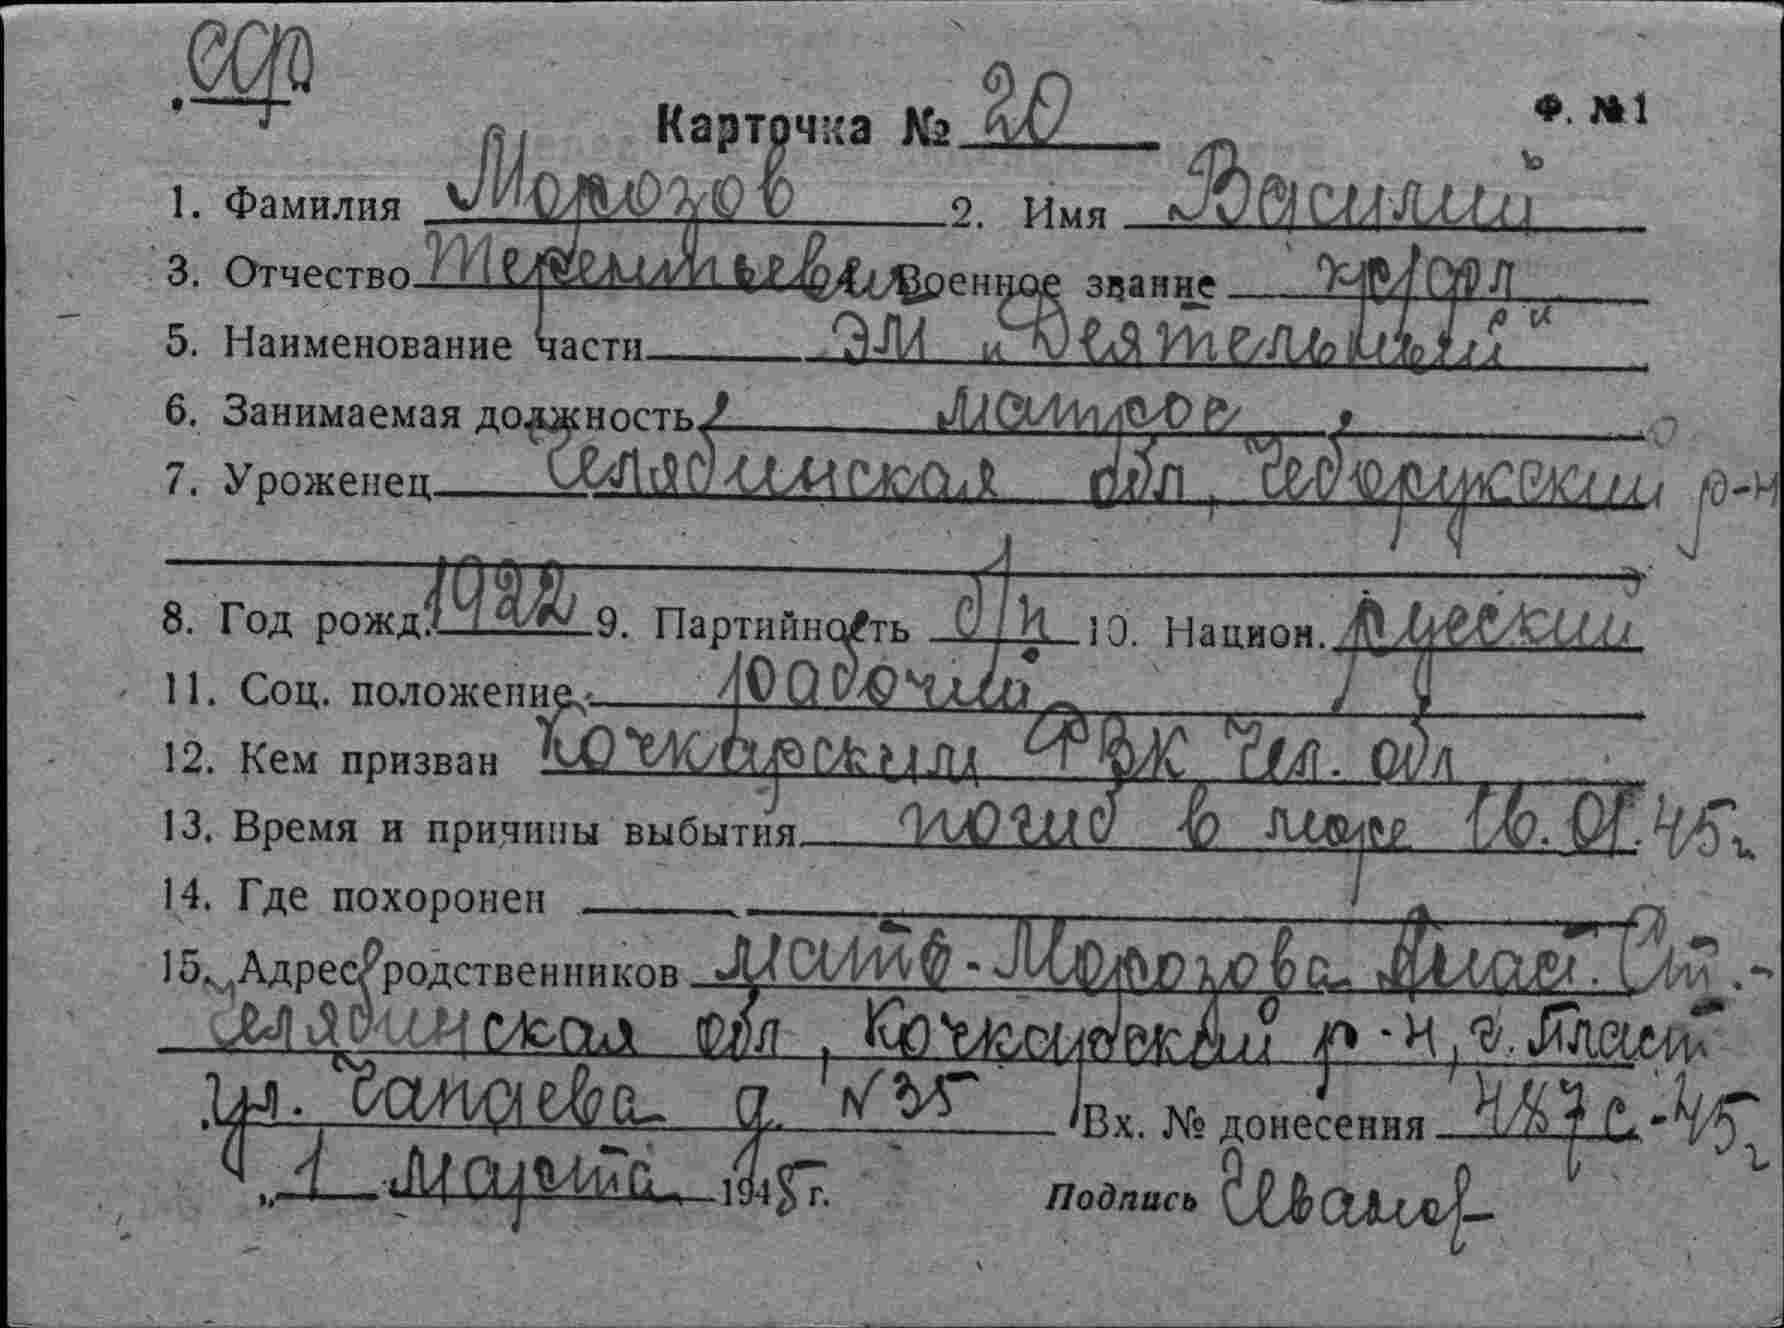 Карточка № 20
Ф. №1
1. Фамилия Морозов 2. Имя Василий
3. Отчество Терентьевич Военное звание
5. Наименование части ЭМ "Деятельный"
6. Занимаемая должность
7. Уроженец Челябинская обл, р-н
8. Год рожд. 1922 9. Партийность б/п 10. Национ. русский
11. Соц. положение рабочий
12. Кем призван Кочкарским РВК Чел. обл
13. Время и причины выбытия погиб в море 16.01.45г
14. Где похоронен
15. Адрес родственников мать - Морозова Ст. -
Челябинская обл, Кочкарский р-н, г. Пласт
ул. Чапаева д. №35 Вх. № донесения 487с-45г
„1 Марта 1945 г. Подпись Иванов